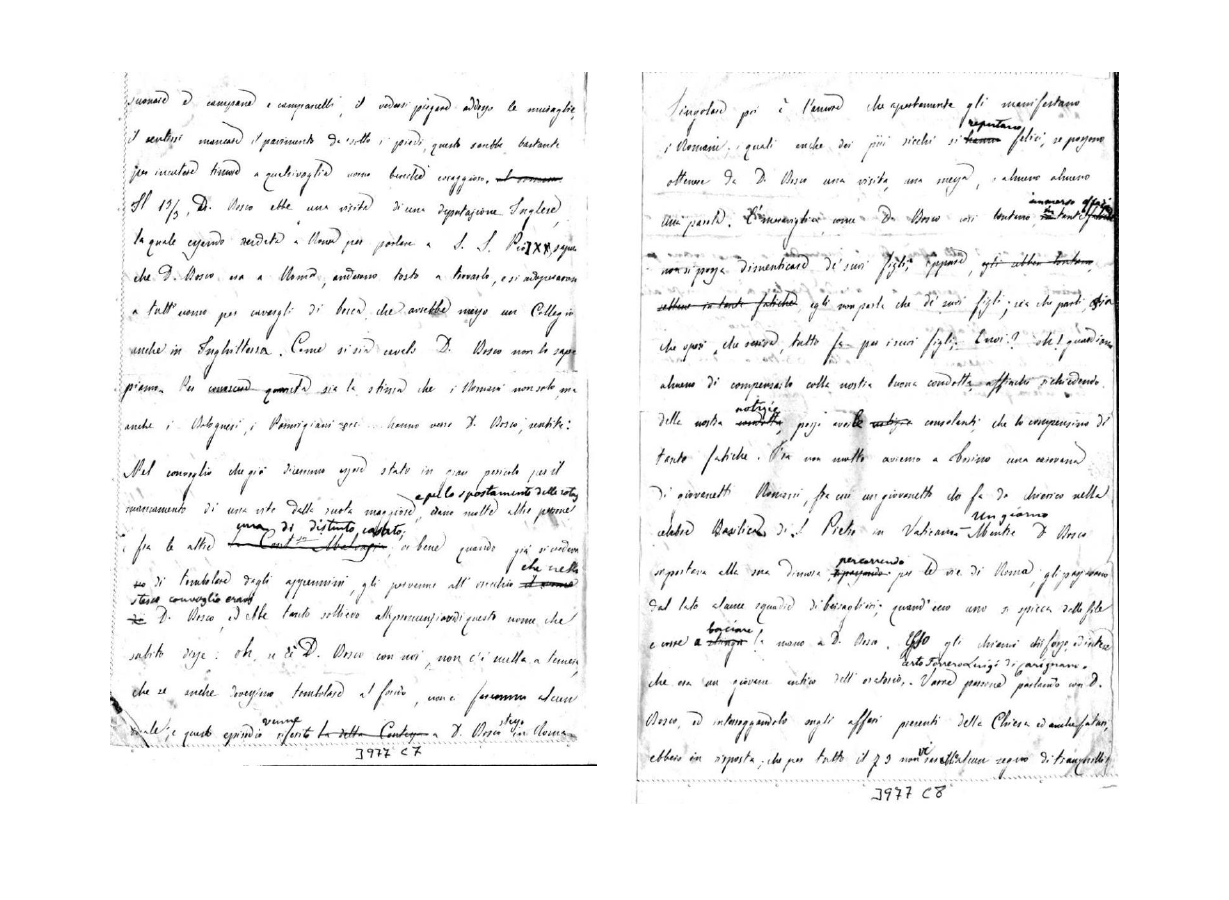 suonare e campane e campanelli, il vedersi piegare addosso le muraglie,
il sentirsi mancare il pavimento da sotto i piedi, questo sarebbe bastante
per incutere timore a qualsivoglia uomo benché coraggioso.
Il 19/3, D. Bosco ebbe una visita di una deputazione Inglese,
la quale essendo venduta a Roma per parlare a S. S. Pio IX,
che D. Bosco era a Roma, andarono tosto a trovarlo, e si adoperarono
a tutt'uomo per cavargli di bocca, che avrebbe messo un Collegio
anche in Inghilterra. Come si sia cavato D. Bosco non lo sap-
piamo. Per quanta sia la stima che i Romani non solo, ma
anche i Bolognesi, i Parmigiani hanno verso D. Bosco, sentite:
Nel convoglio che già dicemmo essere stato in gran pericolo per il
e per lo spostamento delle rotaje
mancamento di una vite dalla ruota maggiore, erano molte altre persone
una di distinto casato,
e fra le altre la Cont.ssa Malvasia, or bene quando già si vedeva
che nello
di tombolare dagli appennini, gli pervenne all'orecchio il nome
stesso convoglio eravi
D. Bosco, ed ebbe tanto sollievo al pronunziarsi di questo nome, che
subito disse: oh, se c'è D. Bosco con noi, non c'è nulla a temere,
che se anche dovessimo tombolare al fondo, non ci faremmo alcun
venne stesso
male; e questo episodio riferito la detta Contessa a D. Bosco in Roma.
3977 C7
Singolare poi è l'amore che apertamente gli manifestano
reputano
i Romani, i quali anche dei più ricchi si hanno felici, se possono
ottenere da D. Bosco una visita, una messa, o almeno almeno
in mezzo
una parola. È meraviglia come D. Bosco così lontano, tante
non si possa dimenticare de' suoi figli; eppure, egli abbia lontano,
in tante fatiche egli non parla che de' suoi figli; sia che parli, sia
che operi, che scriva, tutto fa per i suoi figli. E noi? oh! guardiamo
almeno di compensarlo colla nostra buona condotta, affinché richiedendo
notizie
della nostra condotta, possa averle notizie consolanti che lo compensino di
tante fatiche. Fra non molto avremo a Torino una carovana
di giovanetti Romani, fra cui un giovanetto che fa da chierico nella
Un giorno
celebre Basilica di S. Pietro in Vaticano. Mentre D. Bosco
percorrendo
si portava alla sua dimora passando per le vie di Roma, gli passarono
dal lato alcune squadre di bersaglieri; quand'ecco uno si spicca dalle file
baciare
e corse a la mano a D. Bosco. Esso gli chiese chi fosse ed intese
certo Ferrero Luigi di Carignano.
che era un giovane antico dell'oratorio. Varie persone parlando con D.
Bosco, ed interrogandolo sugli affari presenti della Chiesa ed anche futuri,
vi
ebbero in risposta, che per tutto il 73 non sarebbe alcun segno di tranquillità
3977 C8